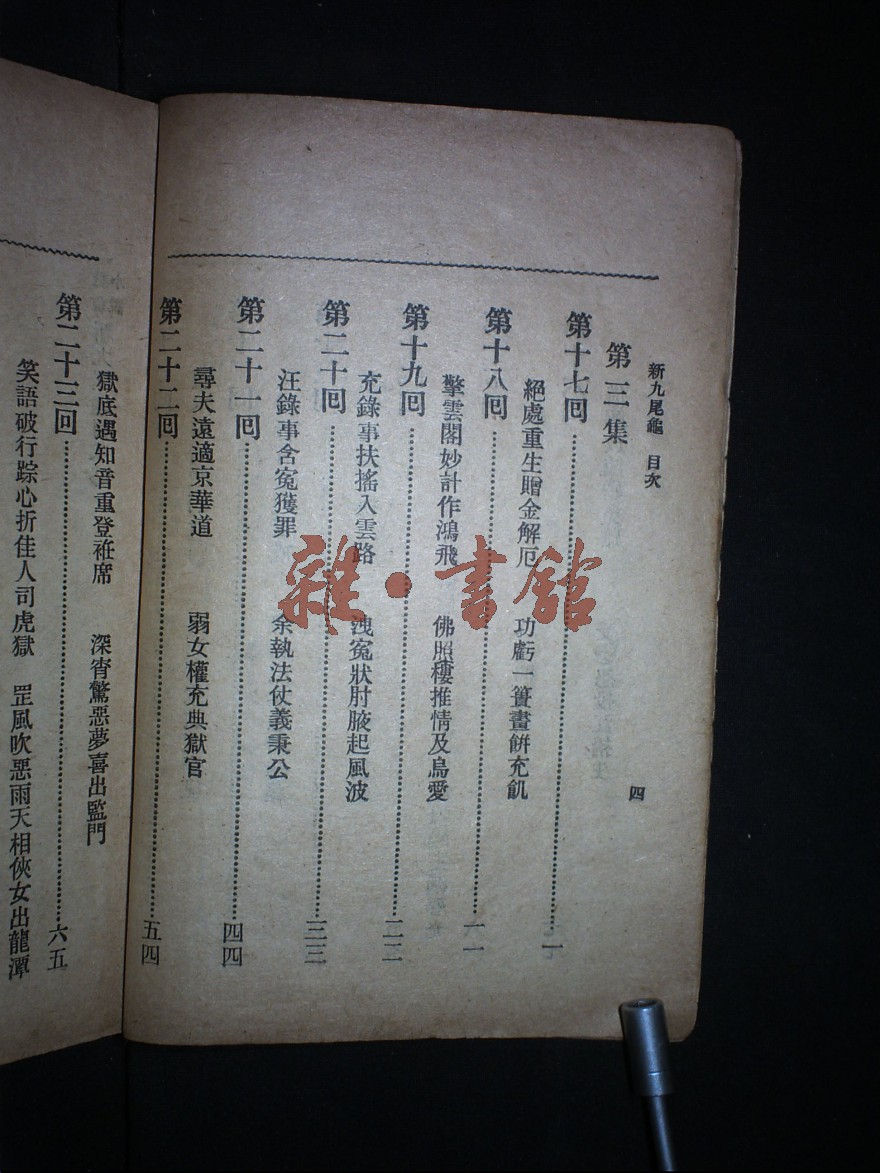 新九尾龜 目次
四
第三集
第十七回……一
絕處重生贈金解厄 功虧一簣畫餅充飢
第十八回……一一
擎雲閣妙計作鴻飛 佛照樓推情及烏愛
第十九回……二二
充錄事扶搖入雲路 洩冤狀肘腋起風波
第二十回……三三
汪錄事含冤獲罪 余執法仗義秉公
第二十一回……四四
尋夫遠適京華道 弱女權充典獄官
第二十二回……五四
獄底遇知音重登袵席 深宵驚惡夢喜出監門
第二十三回……六五
笑語破行踪心折佳人司虎獄 罡風吹惡雨天相俠女出龍潭
雜·書館